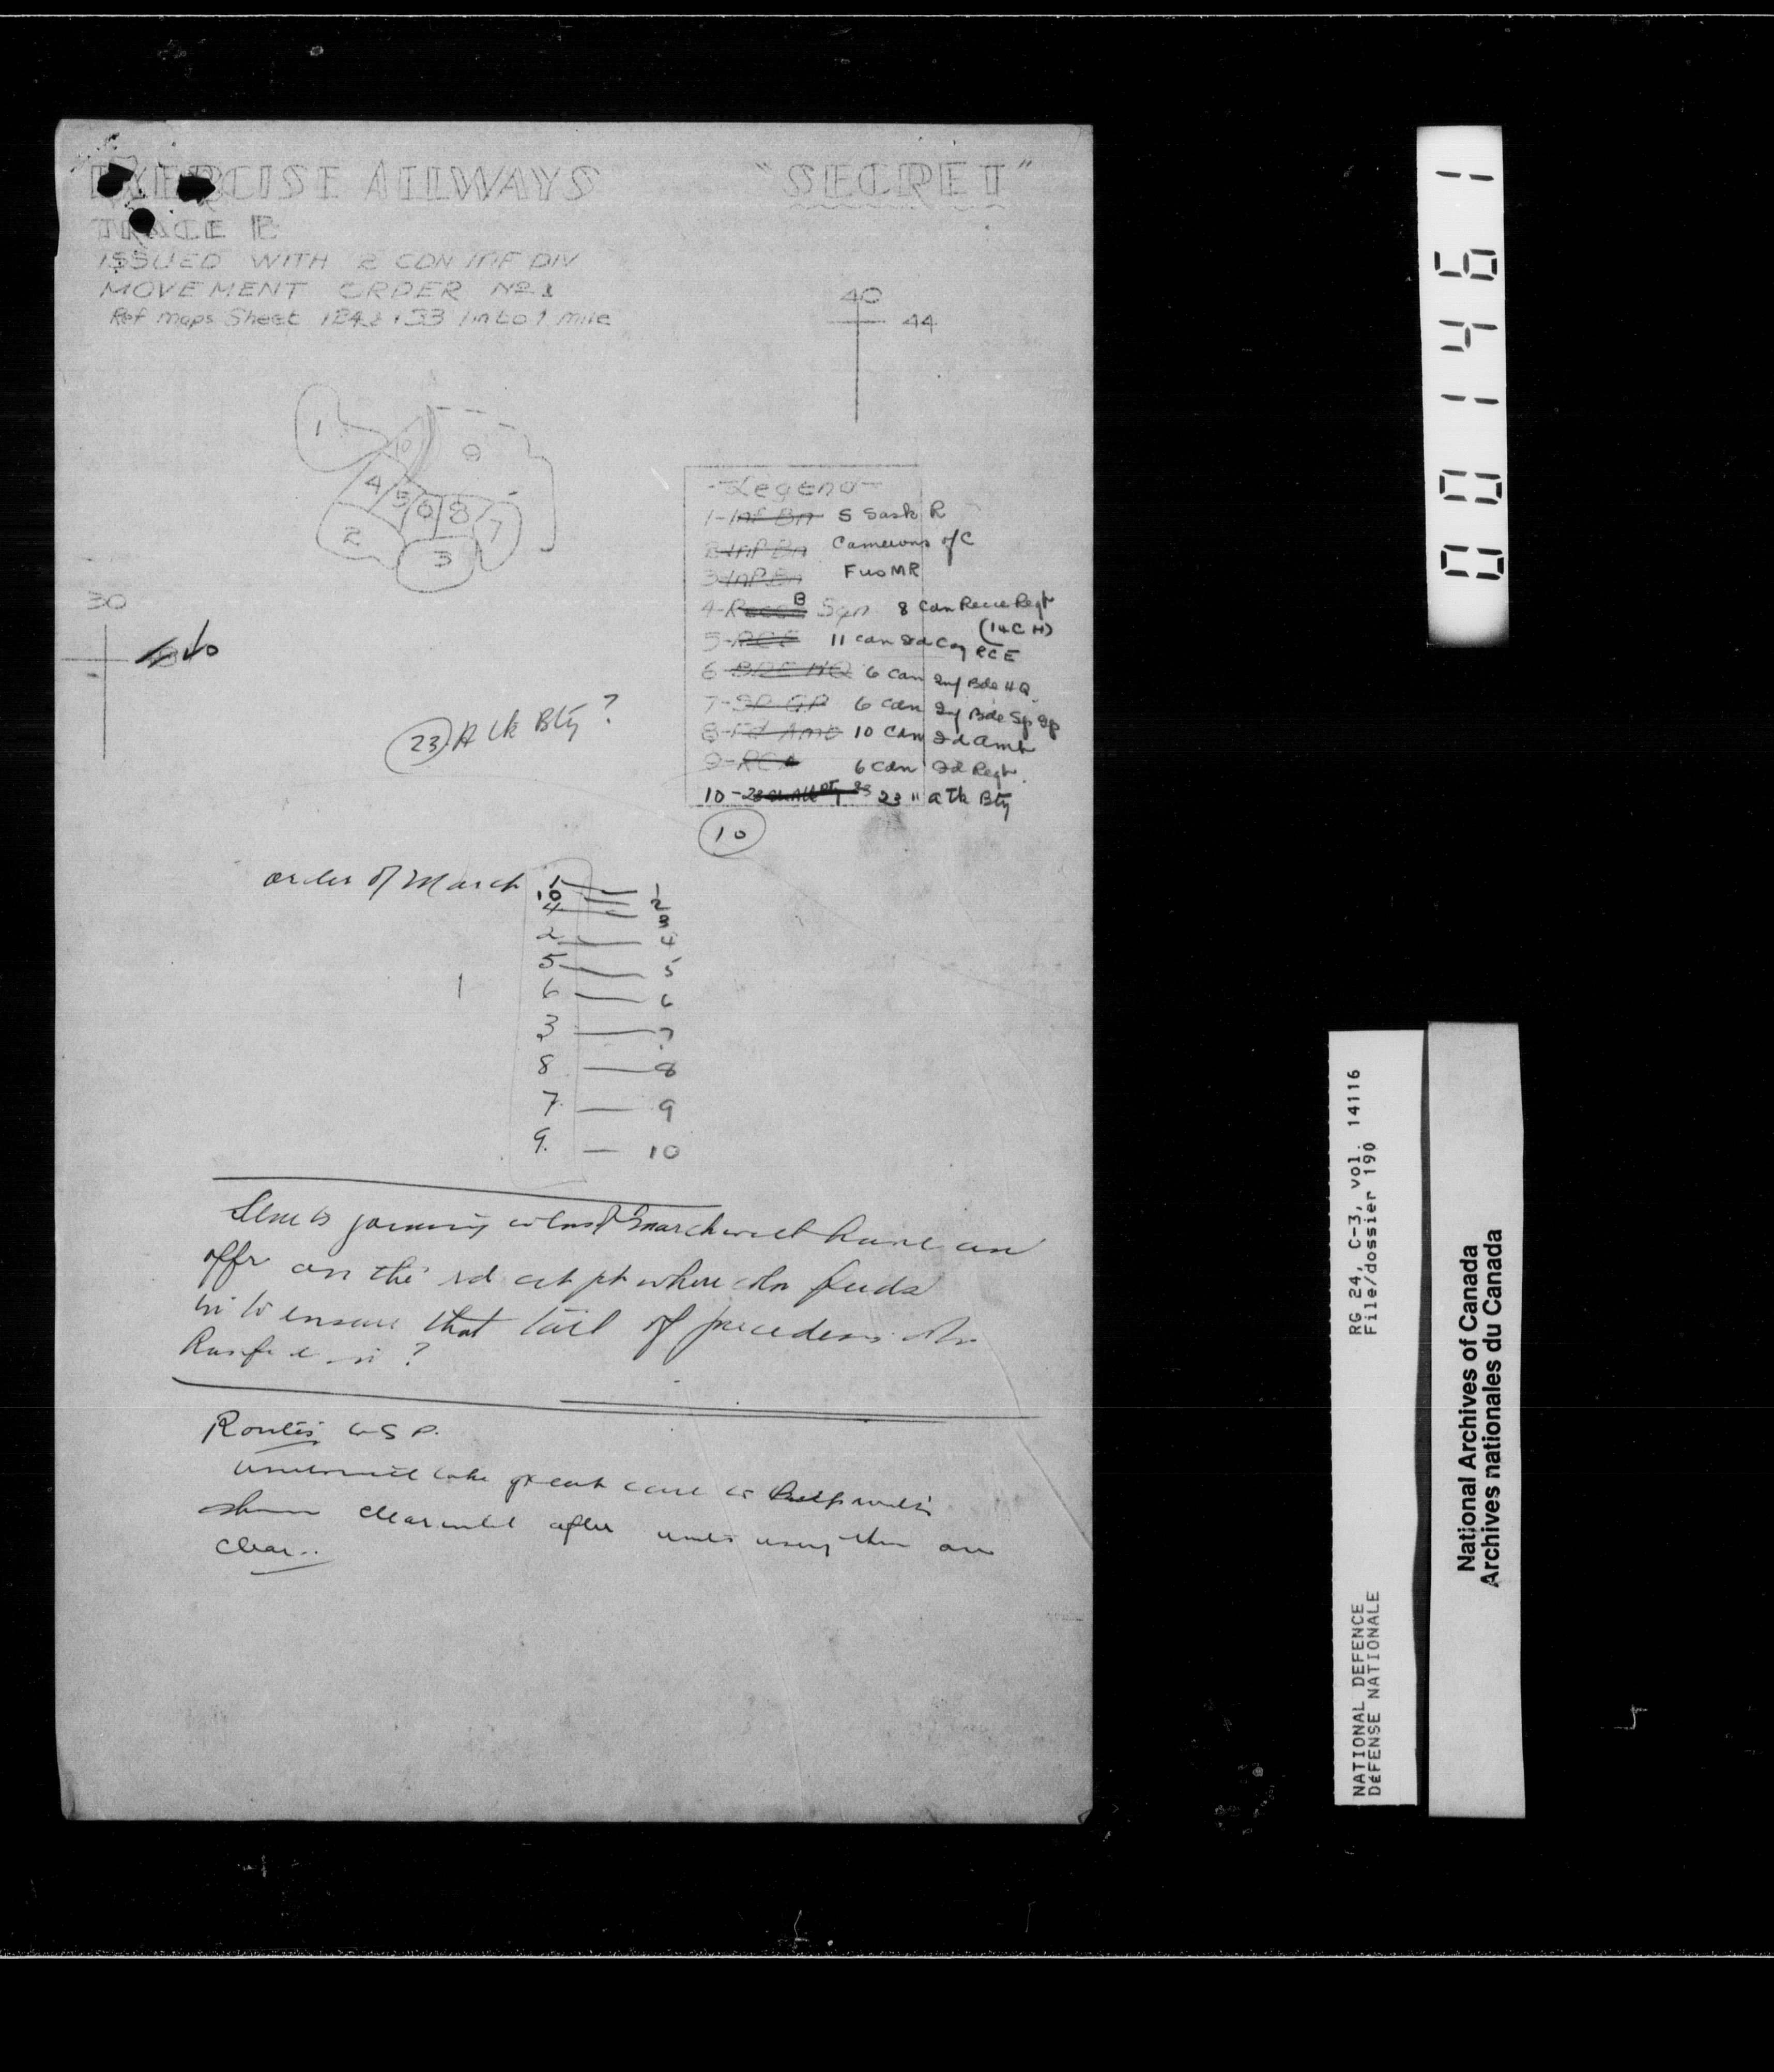 EXERCISE ALLWAYS
"SECRET"
TRACE B
ISSUED WITH 2 CDN INF DIV
MOVEMENT ORDER Nº 1
Ref maps Sheet 124 & 133 1 in to 1 mile
40
44
1
10
9
4
5
6
8
7
2
3
30
-Legend-
1-Inf Bn S Sask R
2-Inf Bn Camerons of C
3-Inf Bn Fus MR
4-Recce B Sqn 8 Cdn Recce Regt
(14 C H)
5-RCE 11 Cdn Fd Coy RCE
6-BDE HQ 6 Cdn Inf Bde HQ
7-SP GP 6 Cdn Inf Bde Sp Gp
8-Fd Amb 10 Cdn Fd Amb
9-RCA 6 Cdn Fd Regt.
10- 23 " A Tk Bty
10
23 A tk Bty ?
order of March
1 — 1
10 — 2
4 — 3
2 — 4
5 — 5
6 — 6
3 — 7
8 — 8
7 — 9
9. — 10
joining march will have an
offr on the rd at pt where coln feeds
in to ensure that tail of preceding coln
?
Routes to S P.
will take great care to routes
clear until after units using them are
clear..
0001461
RG 24, C-3, vol. 14116
File/dossier 190
NATIONAL DEFENCE
DÉFENSE NATIONALE
National Archives of Canada
Archives nationales du Canada